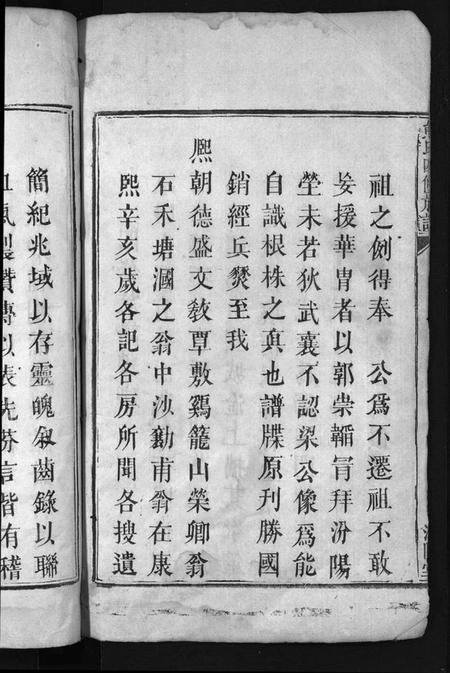 祖之例得奉 公爲不遷祖不敢
妄援華胄者以郭崇韜冒拜汾陽
塋未若狄武襄不認梁公像爲能
自識根株之眞也譜牒原刊勝國
銷經兵燹至我
熈朝德盛文敎覃敷鷄籠山榮卿翁
石禾塘漍之翁中沙勷甫翁在康
熈辛亥歲各記各房所聞各搜遺
簡紀兆域以存靈魄叙齒錄以聯